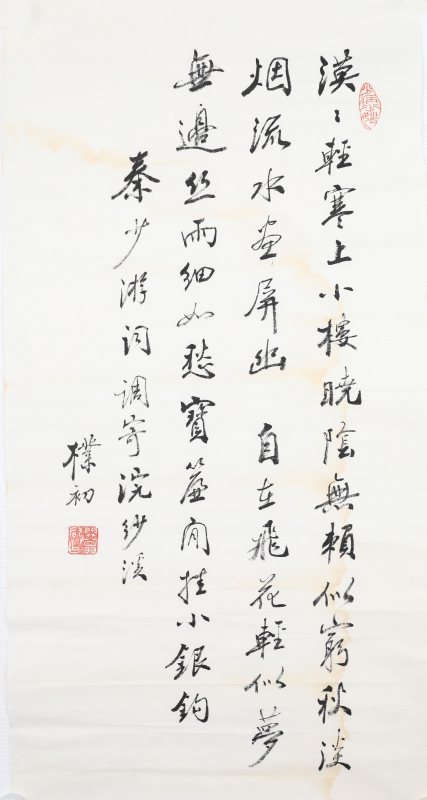 漠〻輕寒上小樓曉陰無賴似窮秋淡
烟流水畫屏幽 自在飛花輕似夢
無邊丝雨细如愁寶簾闲挂小銀鈎
秦少游词调寄浣纱溪
樸初